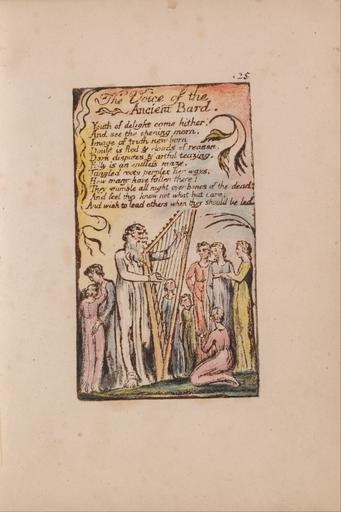 25
The Voice of the
Ancient Bard.
Youth of delight come hither:
And see the opening morn,
Image of truth new born
Doubt is fled & clouds of reason.
Dark disputes & artful teazing.
Folly is an endless maze,
Tangled roots perplex her ways,
How many have fallen there!
They stumble all night over bones of the dead;
And feel they know not what but care;
And wish to lead others when they should be led